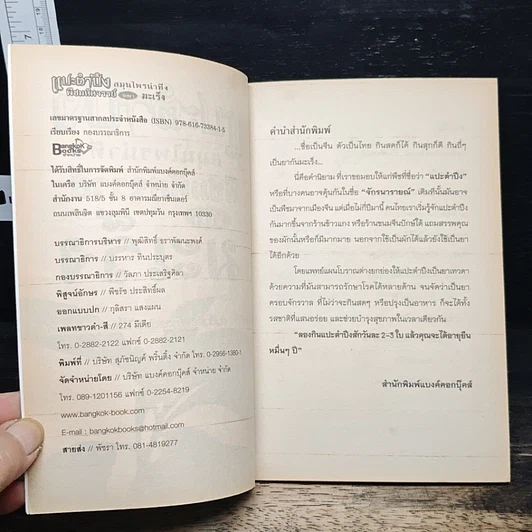 แปะตำปึง สมุนไพรน่าทึ่ง
พิชิตมะเร็ง
เลขมาตรฐานสากลประจำหนังสือ (ISBN) 978-616-73384-1-5
เรียบเรียง กองบรรณาธิการ
Bangkok Books
ได้รับสิทธิ์ในการจัดพิมพ์ สำนักพิมพ์แบงค์คอกบุ๊คส์
ในเครือ บริษัท แบงค์คอกบุ๊คส์ จำหน่าย จำกัด
สำนักงาน 518/5 ชั้น 8 อาคารมณียาเซ็นเตอร์
ถนนเพลินจิต แขวงลุมพินี เขตปทุมวัน กรุงเทพฯ 10330
บรรณาธิการบริหาร // พูฒิสิทธิ์ ธราพัฒนะพงศ์
บรรณาธิการ // บรรหาร ทินประบุตร
กองบรรณาธิการ // วัลภา ประเสริฐศิลา
พิสูจน์อักษร // พีชรัช ประสิทธิ์ผล
ออกแบบปก // กุลิสรา แสงแผน
เพลทขาวดำ-สี // 274 มีเดีย
โทร. 0-2882-2122 แฟกซ์ 0-2882-2121
พิมพ์ที่ // บริษัท สุภัชนิญค์ พริ้นติ้ง จำกัด โทร. 0-2956-1380-1
จัดจำหน่ายโดย // บริษัท แบงค์คอกบุ๊คส์ จำหน่าย จำกัด
โทร. 089-1201156 แฟกซ์ 0-2254-8219
www.bangkok-book.com
E-mail : bangkokbooks@hotmail.com
สายส่ง // พัชรา โทร. 081-4819277
คำนำสำนักพิมพ์
...ชื่อเป็นจีน ตัวเป็นไทย กินสดก็ได้ กินสุกก็ดี กินถี่ๆ
เป็นยากันมะเร็ง...
นี่คือคำนิยาม ที่เราขอมอบให้แก่พืชที่ชื่อว่า "แปะตำปึง"
หรือที่บางคนอาจคุ้นกันในชื่อ "จักรนารายณ์" เดิมทีนั้นมันอาจ
เป็นพืชมาจากเมืองจีน แต่เมื่อไม่กี่ปีมานี้ คนไทยเราเริ่มรู้จักแปะตำปึง
กันมากขึ้นจากร้านข้าวแกง หรือร้านขนมจีนปักษ์ใต้ แถมสรรพคุณ
ของผักนั้นหรือก็มีมากมาย นอกจากใช้เป็นผักได้แล้วยังใช้เป็นยา
ได้อีกด้วย
โดยแพทย์แผนโบราณต่างยกย่องให้แปะตำปึงเป็นยาเทวดา
ด้วยความที่มันสามารถรักษาโรคได้หลายด้าน จนจัดว่าเป็นยา
ครอบจักรวาล ที่ไม่ว่าจะกินสดๆ หรือปรุงเป็นอาหาร ก็จะได้ทั้ง
รสชาติที่แสนอร่อย และช่วยบำรุงสุขภาพในเวลาเดียวกัน
"ลองกินแปะตำปึงสักวันละ 2-3 ใบ แล้วคุณจะได้อายุยืน
หมื่นๆ ปี"
สำนักพิมพ์แบงค์คอกบุ๊คส์